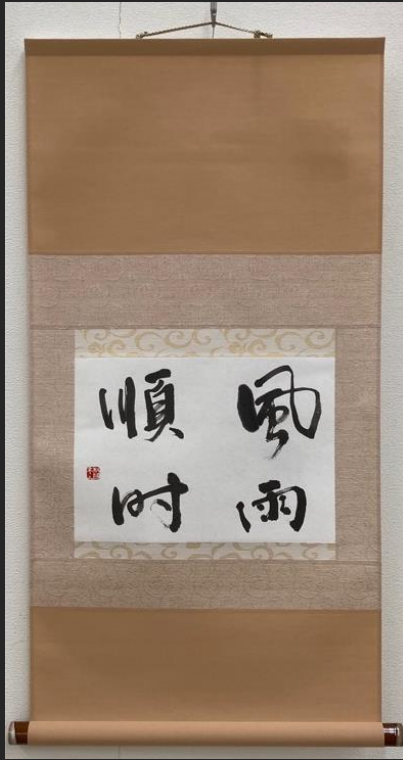 風雨
順时